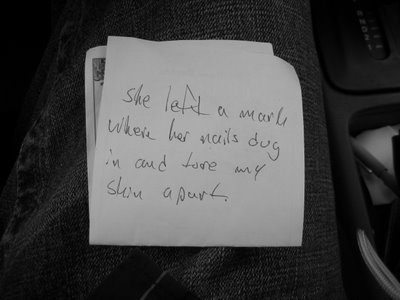 she left a mark
where her nails dug
in and tore my
skin apart.